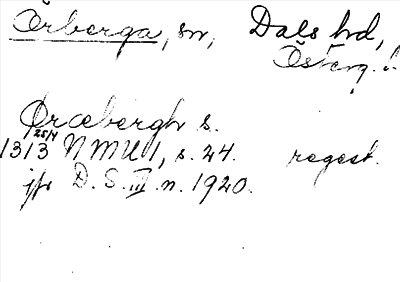 Örberga, sn, Dals hd,
Österg. l.
Øræbergh s.
1313 25/4 NMU 1, s. 24. regest.
jfr D. S. III n. 1920.